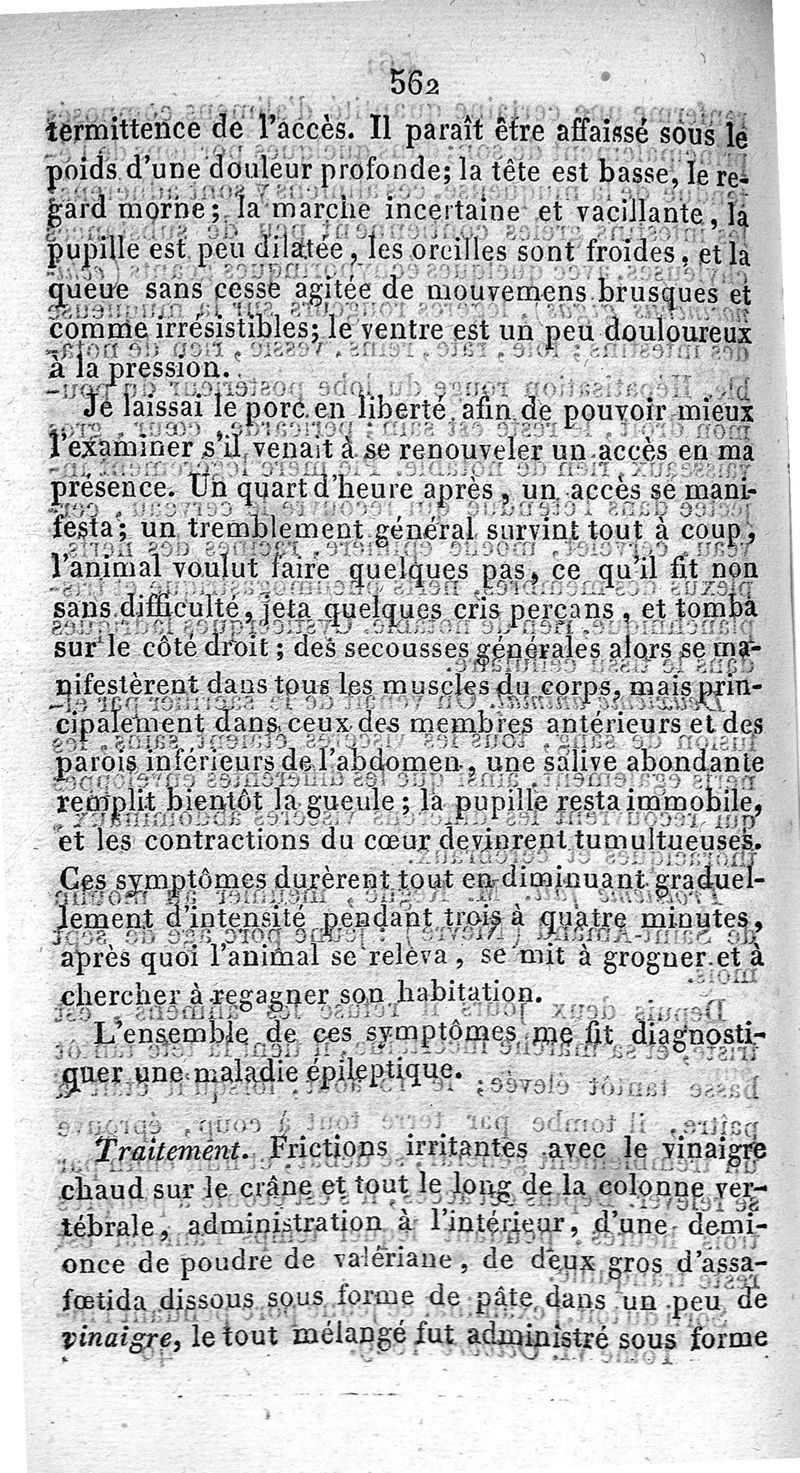 562
termittence de l'accès. Il paraît être affaissé sous le
poids d'une douleur profonde; la tête est basse, le re-
gard morne; la marche incertaine et vacillante, la
pupille est peu dilatée, les oreilles sont froides, et la
queue sans cesse agitée de mouvemens brusques et
comme irrésistibles; le ventre est un peu douloureux
à la pression.
Je laissai le porc en liberté, afin de pouvoir mieux
l'examiner s'il venait à se renouveler un accès en ma
présence. Un quart d'heure après, un accès se mani-
festa; un tremblement général survint tout à coup,
l'animal voulut faire quelques pas, ce qu'il fit non
sans difficulté, jeta quelques cris perçans, et tomba
sur le côté droit; des secousses générales alors se ma-
nifestèrent dans tous les muscles du corps, mais prin-
cipalement dans ceux des membres antérieurs et des
parois inférieurs de l'abdomen, une salive abondante
remplit bientôt la gueule; la pupille resta immobile,
et les contractions du cœur devinrent tumultueuses.
Ces symptômes durèrent tout en diminuant graduel-
lement d'intensité pendant trois à quatre minutes,
après quoi l'animal se releva, se mit à grogner et à
chercher à regagner son habitation.
L'ensemble de ces symptômes me fit diagnosti-
quer une maladie épileptique.
Traitement. Frictions irritantes avec le vinaigre
chaud sur le crâne et tout le long de la colonne ver-
tébrale, administration à l'intérieur, d'une demi-
once de poudre de valériane, de deux gros d'assa-
fœtida dissous sous forme de pâte dans un peu de
vinaigre, le tout mélangé fut administré sous forme